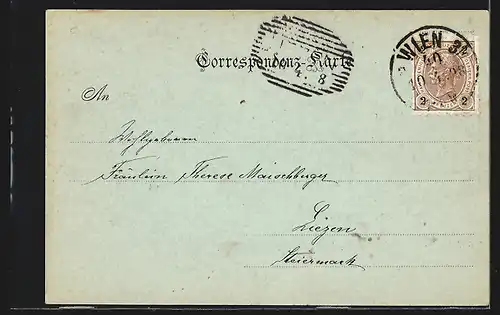 WIEN
40
Correspondenz-Karte
2 2
An
Wohlgeboren
Fräulein Therese Maischberger
Liezen
Steiermark